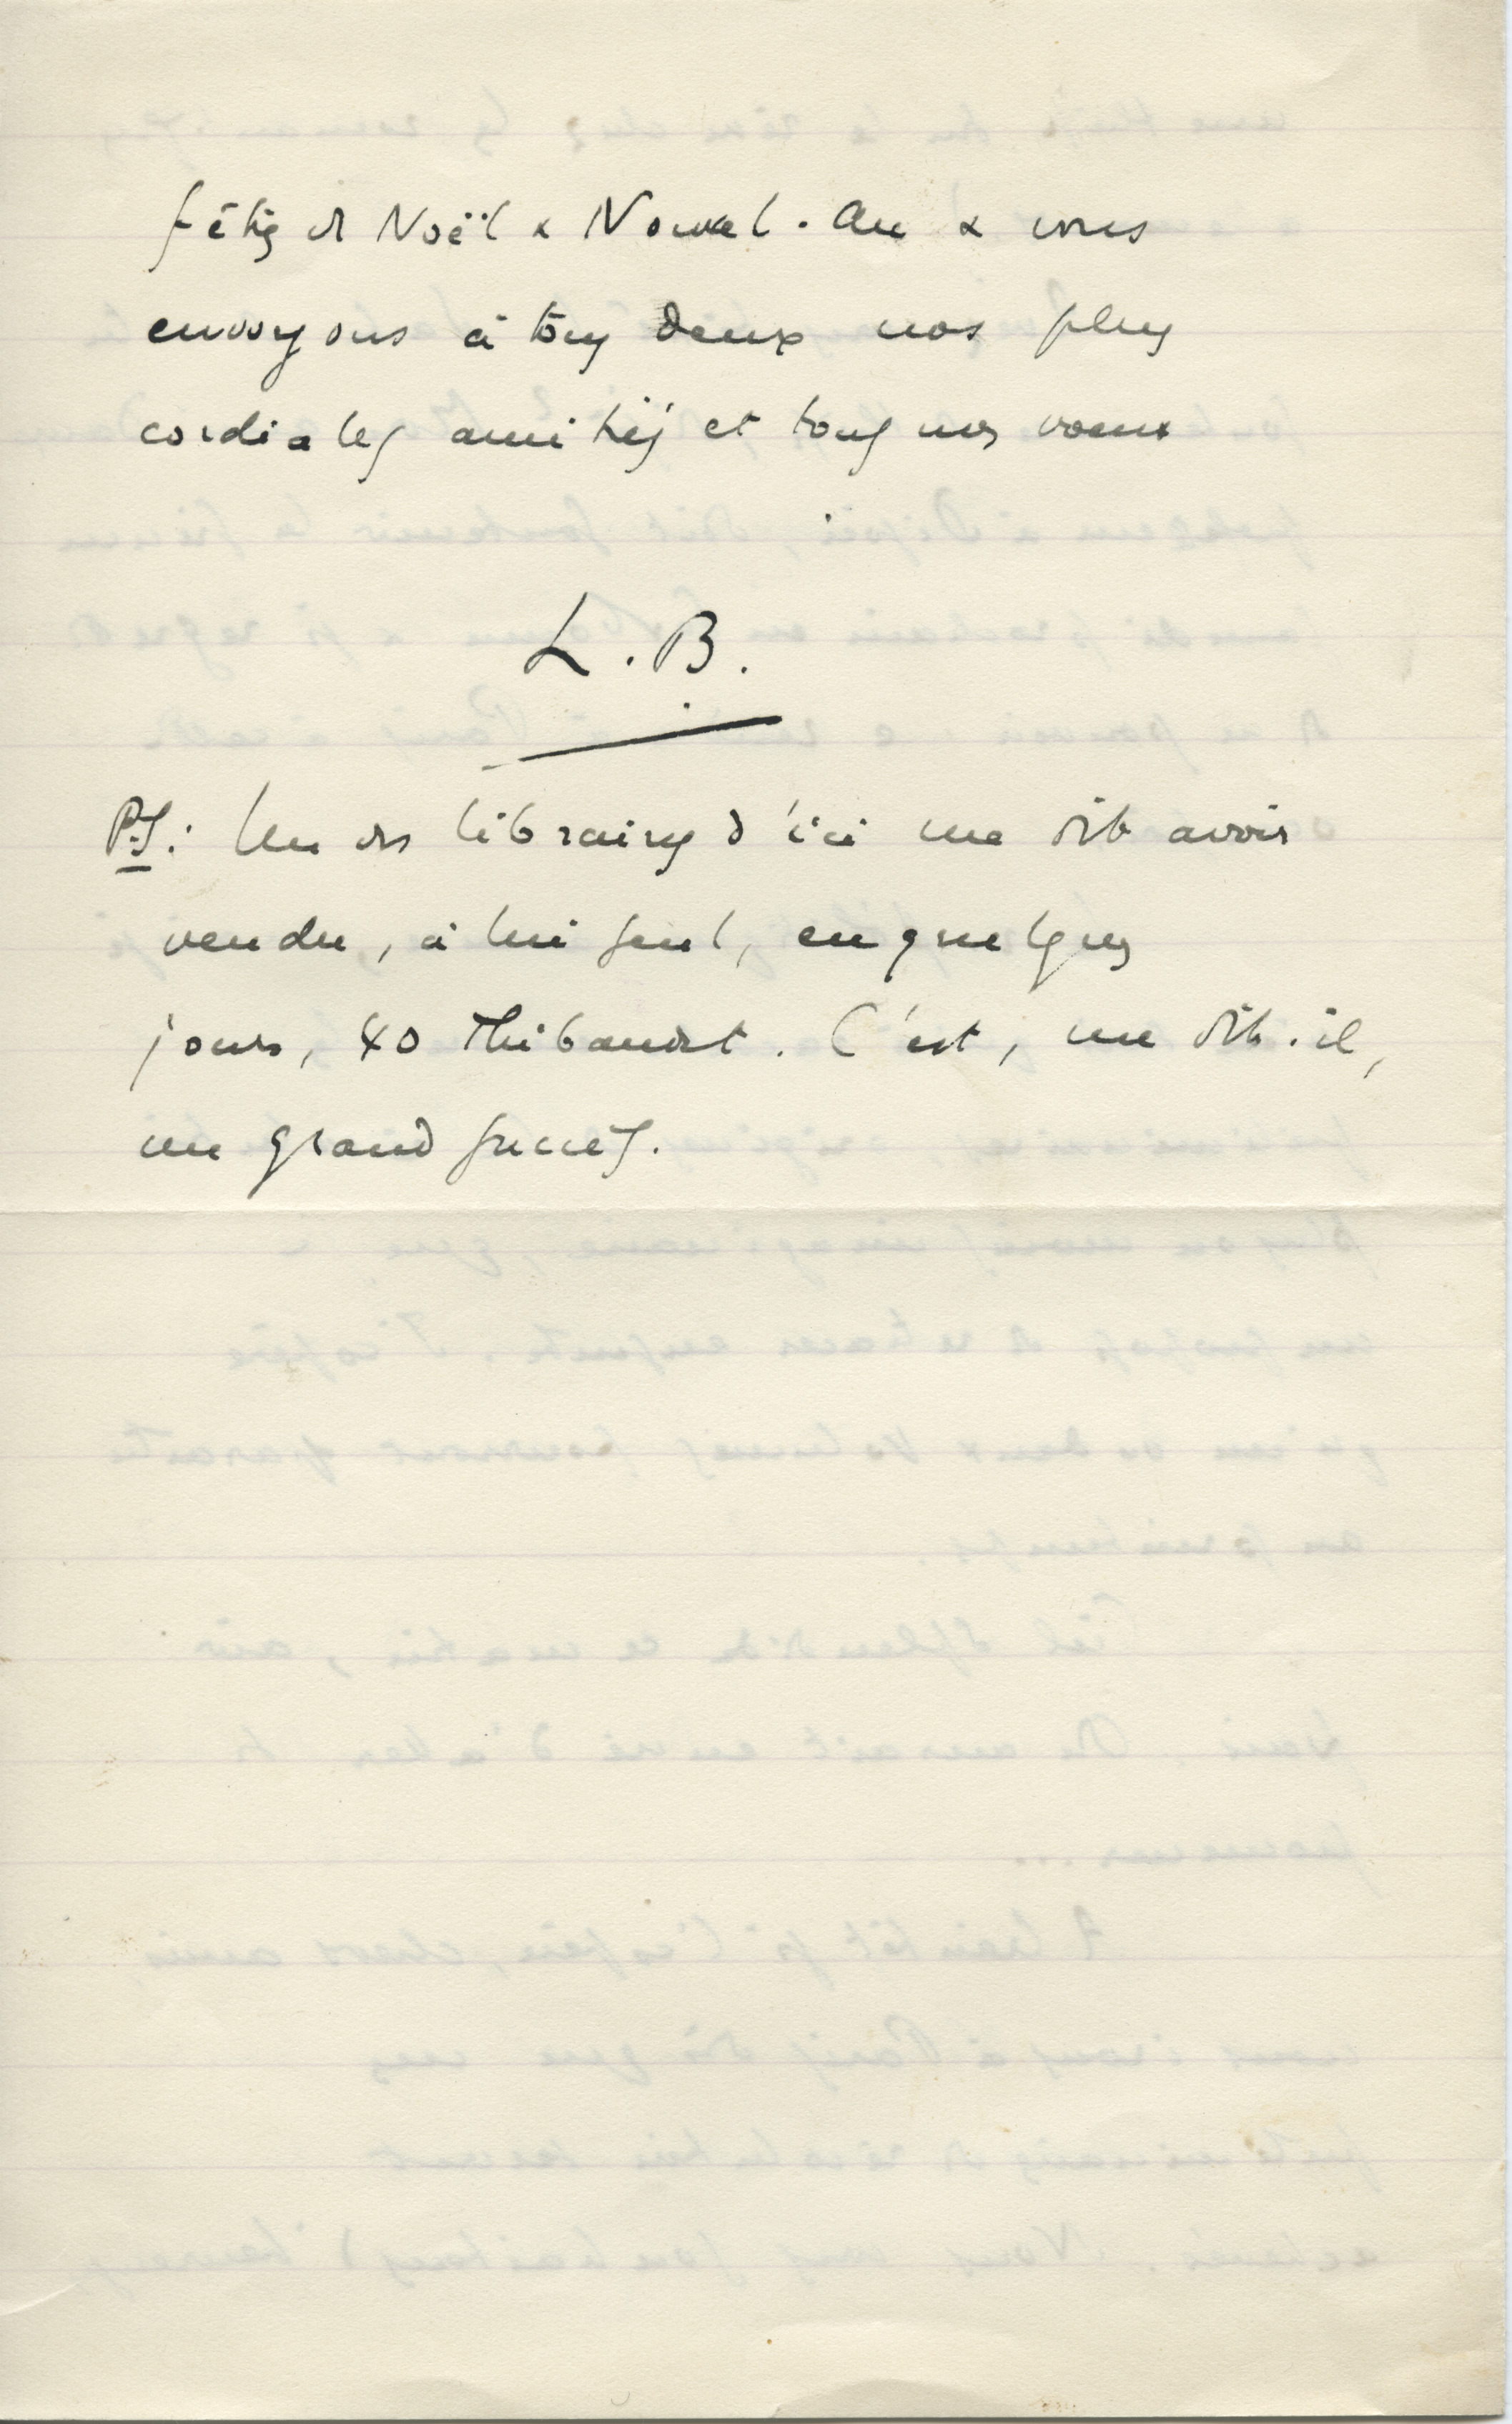 fêtes de Noël & Nouvel-An & vous
envoyons à tous deux nos plus
cordiales amitiés et tous nos voeux
L.B.
P.S: Un des libraires d'ici me dit avoir
vendu, à lui seul, en quelques
jours, 40 Thibaudet. C'est, me dit-il,
un grand succès.